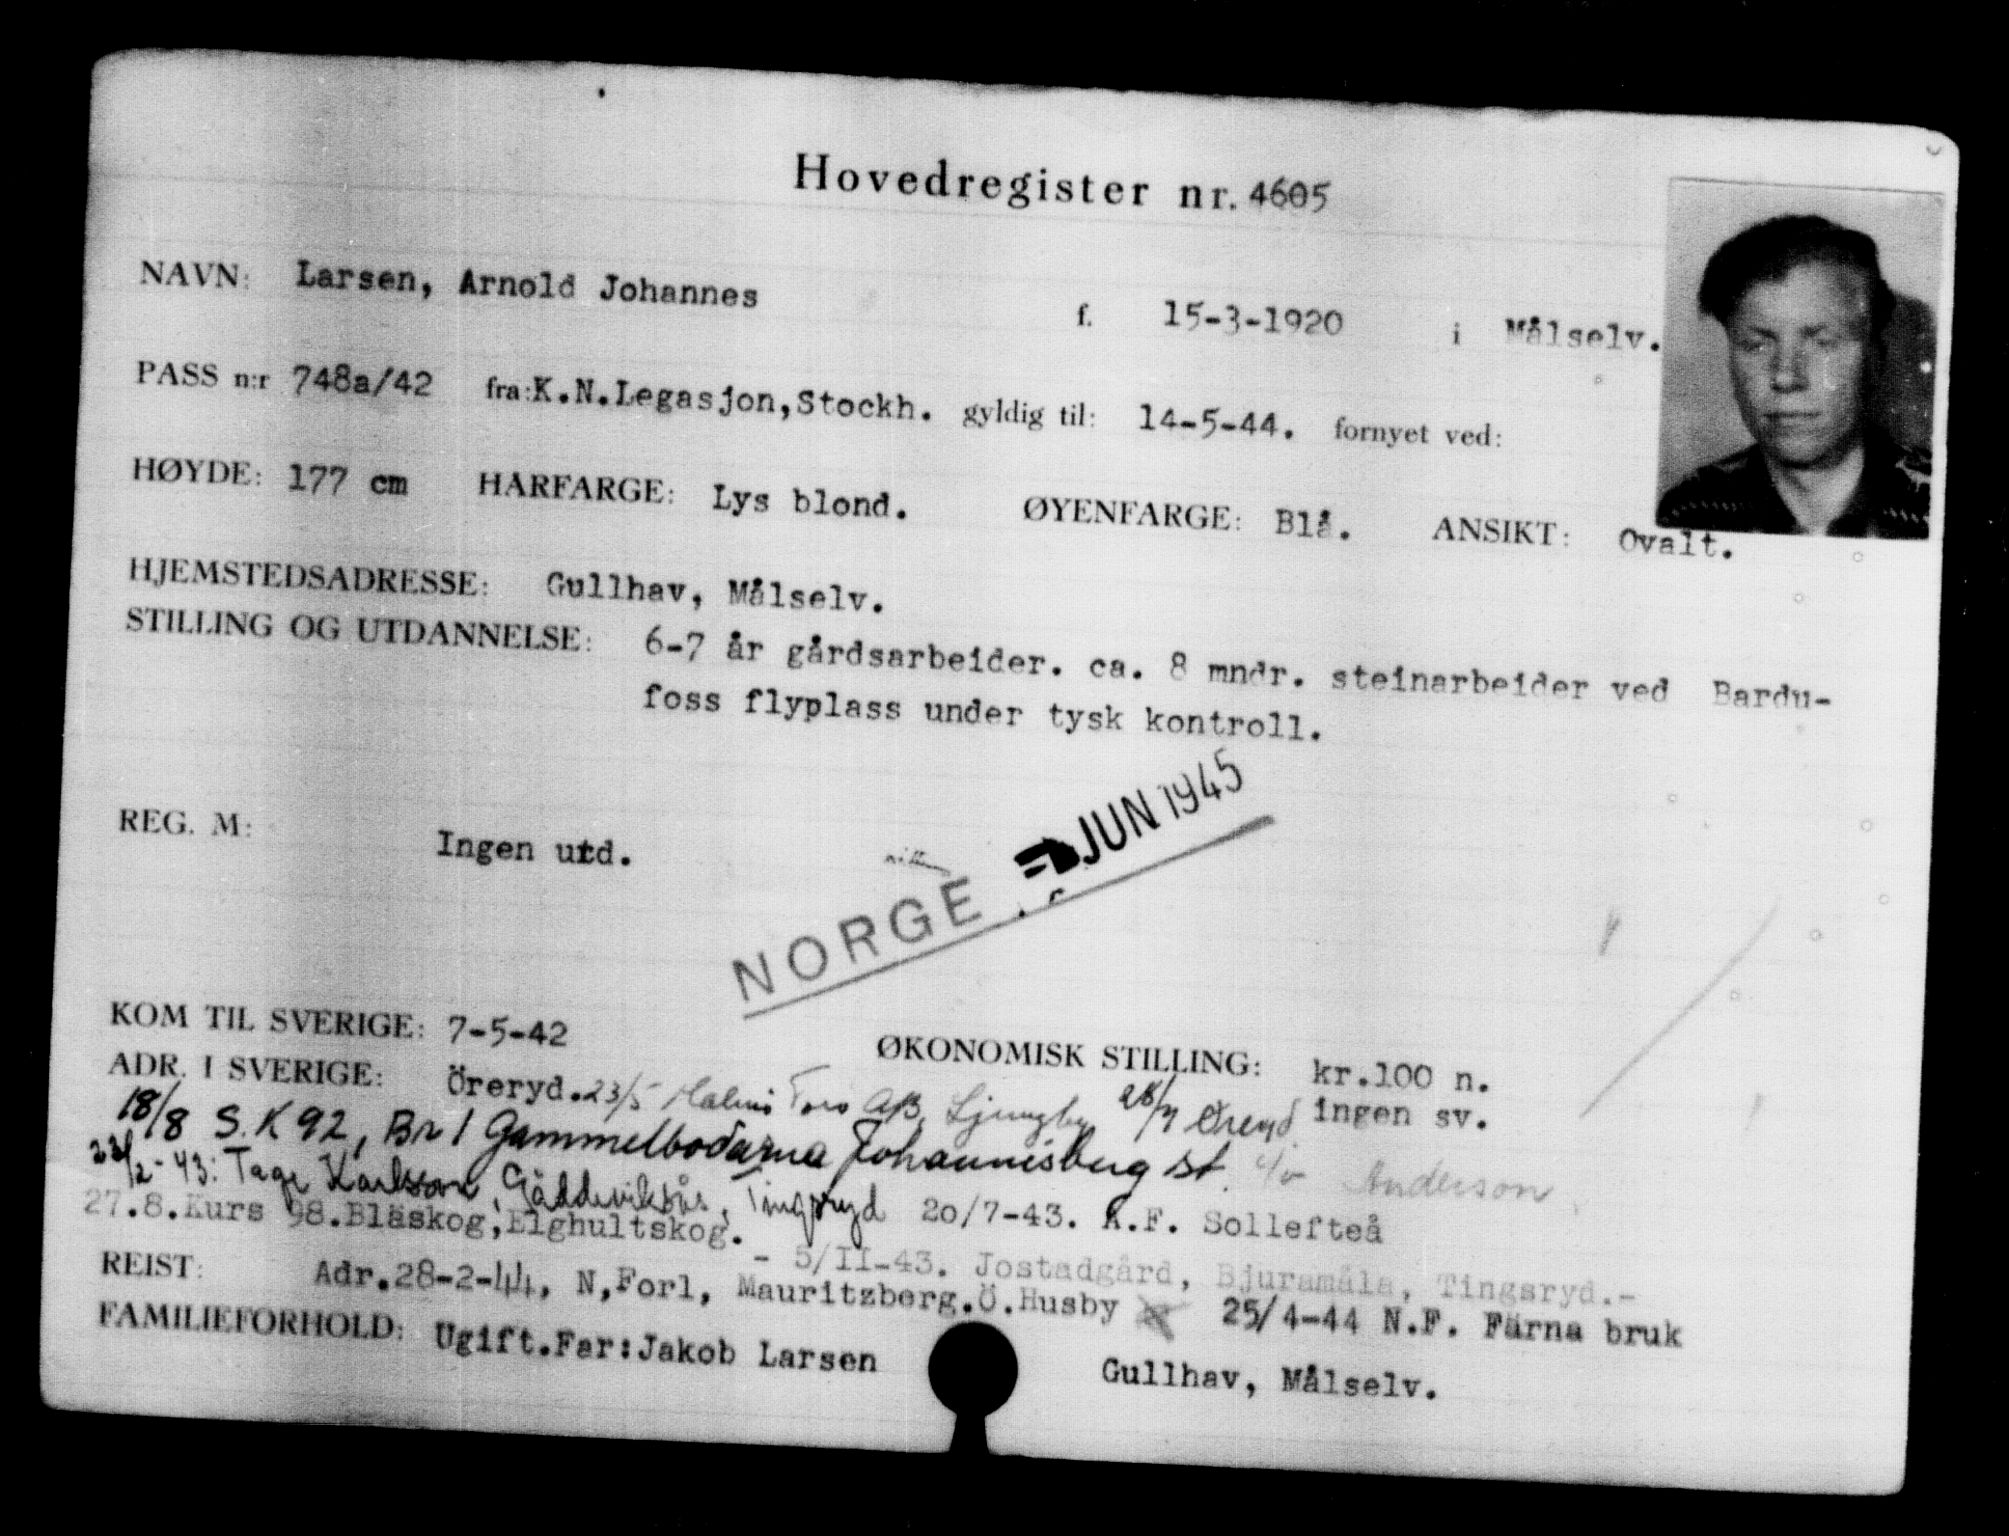 Hovedregister nr. 4605
NAVN: Larsen, Arnold Johannes f. 15-3-1920 i Målselv.
PASS n:r 748a/42 fra: K.N.Legasjon,Stockh. gyldig til: 14-5-44. fornyet ved:
HØYDE: 177 cm HARFARGE: Lys blond. ØYENFARGE: Blå. ANSIKT: Ovalt.
HJEMSTEDSADRESSE: Gullhav, Målselv.
STILLING OG UTDANNELSE: 6-7 år gårdsarbeider. ca. 8 mndr. steinarbeider ved Bardu-
foss flyplass under tysk kontroll.
REG. M: Ingen utd.
NORGE JUN 1945
KOM TIL SVERIGE: 7-5-42 ØKONOMISK STILLING: kr.100 n.
ingen sv.
ADR. I SVERIGE: Öreryd. 23/5 AB, Ljungby 28/7 Øreryd
18/8 S.K 92, Br 1 Gammelbodarna Johannisberg st. c/o Anderson
22/2-43: Tage Karlsson, Tingsryd 20/7-43. K.F. Sollefteå
27.8.Kurs 98.Bläskog,Elghultskog. - 5/II-43. Jostadgård, Bjuramåla, Tingsryd.-
REIST: Adr.28-2-44, N,Forl, Mauritzberg.Ö.Husby 25/4-44 N.F. Färna bruk
FAMILIEFORHOLD: Ugift.Far:Jakob Larsen Gullhav, Målselv.